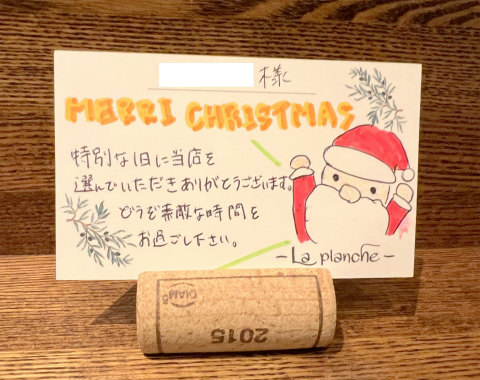 様
MERRI CHRISTMAS
特別な日に当店を
選んでいただきありがとうございます。
どうぞ素敵な時間を
お過ごし下さい。
-La planche-
DIAM
2015